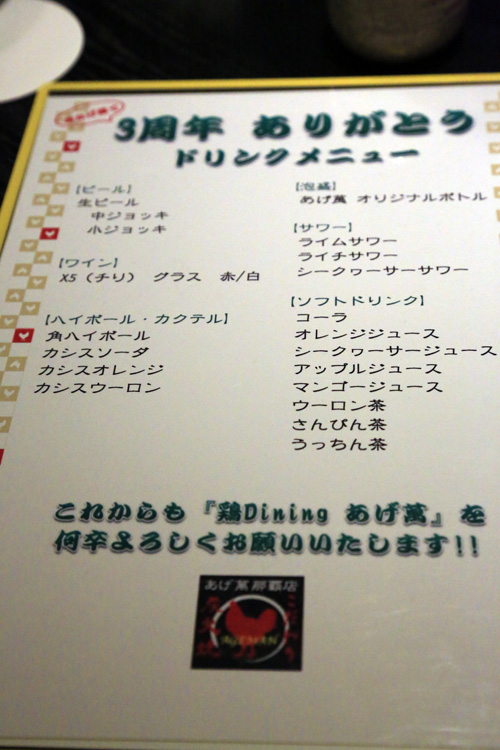 3周年 ありがとう
ドリンクメニュー
【ビール】
生ビール
中ジョッキ
小ジョッキ
【ワイン】
X5(チリ) グラス 赤/白
【ハイボール・カクテル】
角ハイボール
カシスソーダ
カシスオレンジ
カシスウーロン
【泡盛】
あげ萬 オリジナルボトル
【サワー】
ライムサワー
ライチサワー
シークヮーサーサワー
【ソフトドリンク】
コーラ
オレンジジュース
シークヮーサージュース
アップルジュース
マンゴージュース
ウーロン茶
さんぴん茶
うっちん茶
これからも『鶏Dining あげ萬』を
何卒よろしくお願いいたします!!
あげ萬那覇店
AGEMAN